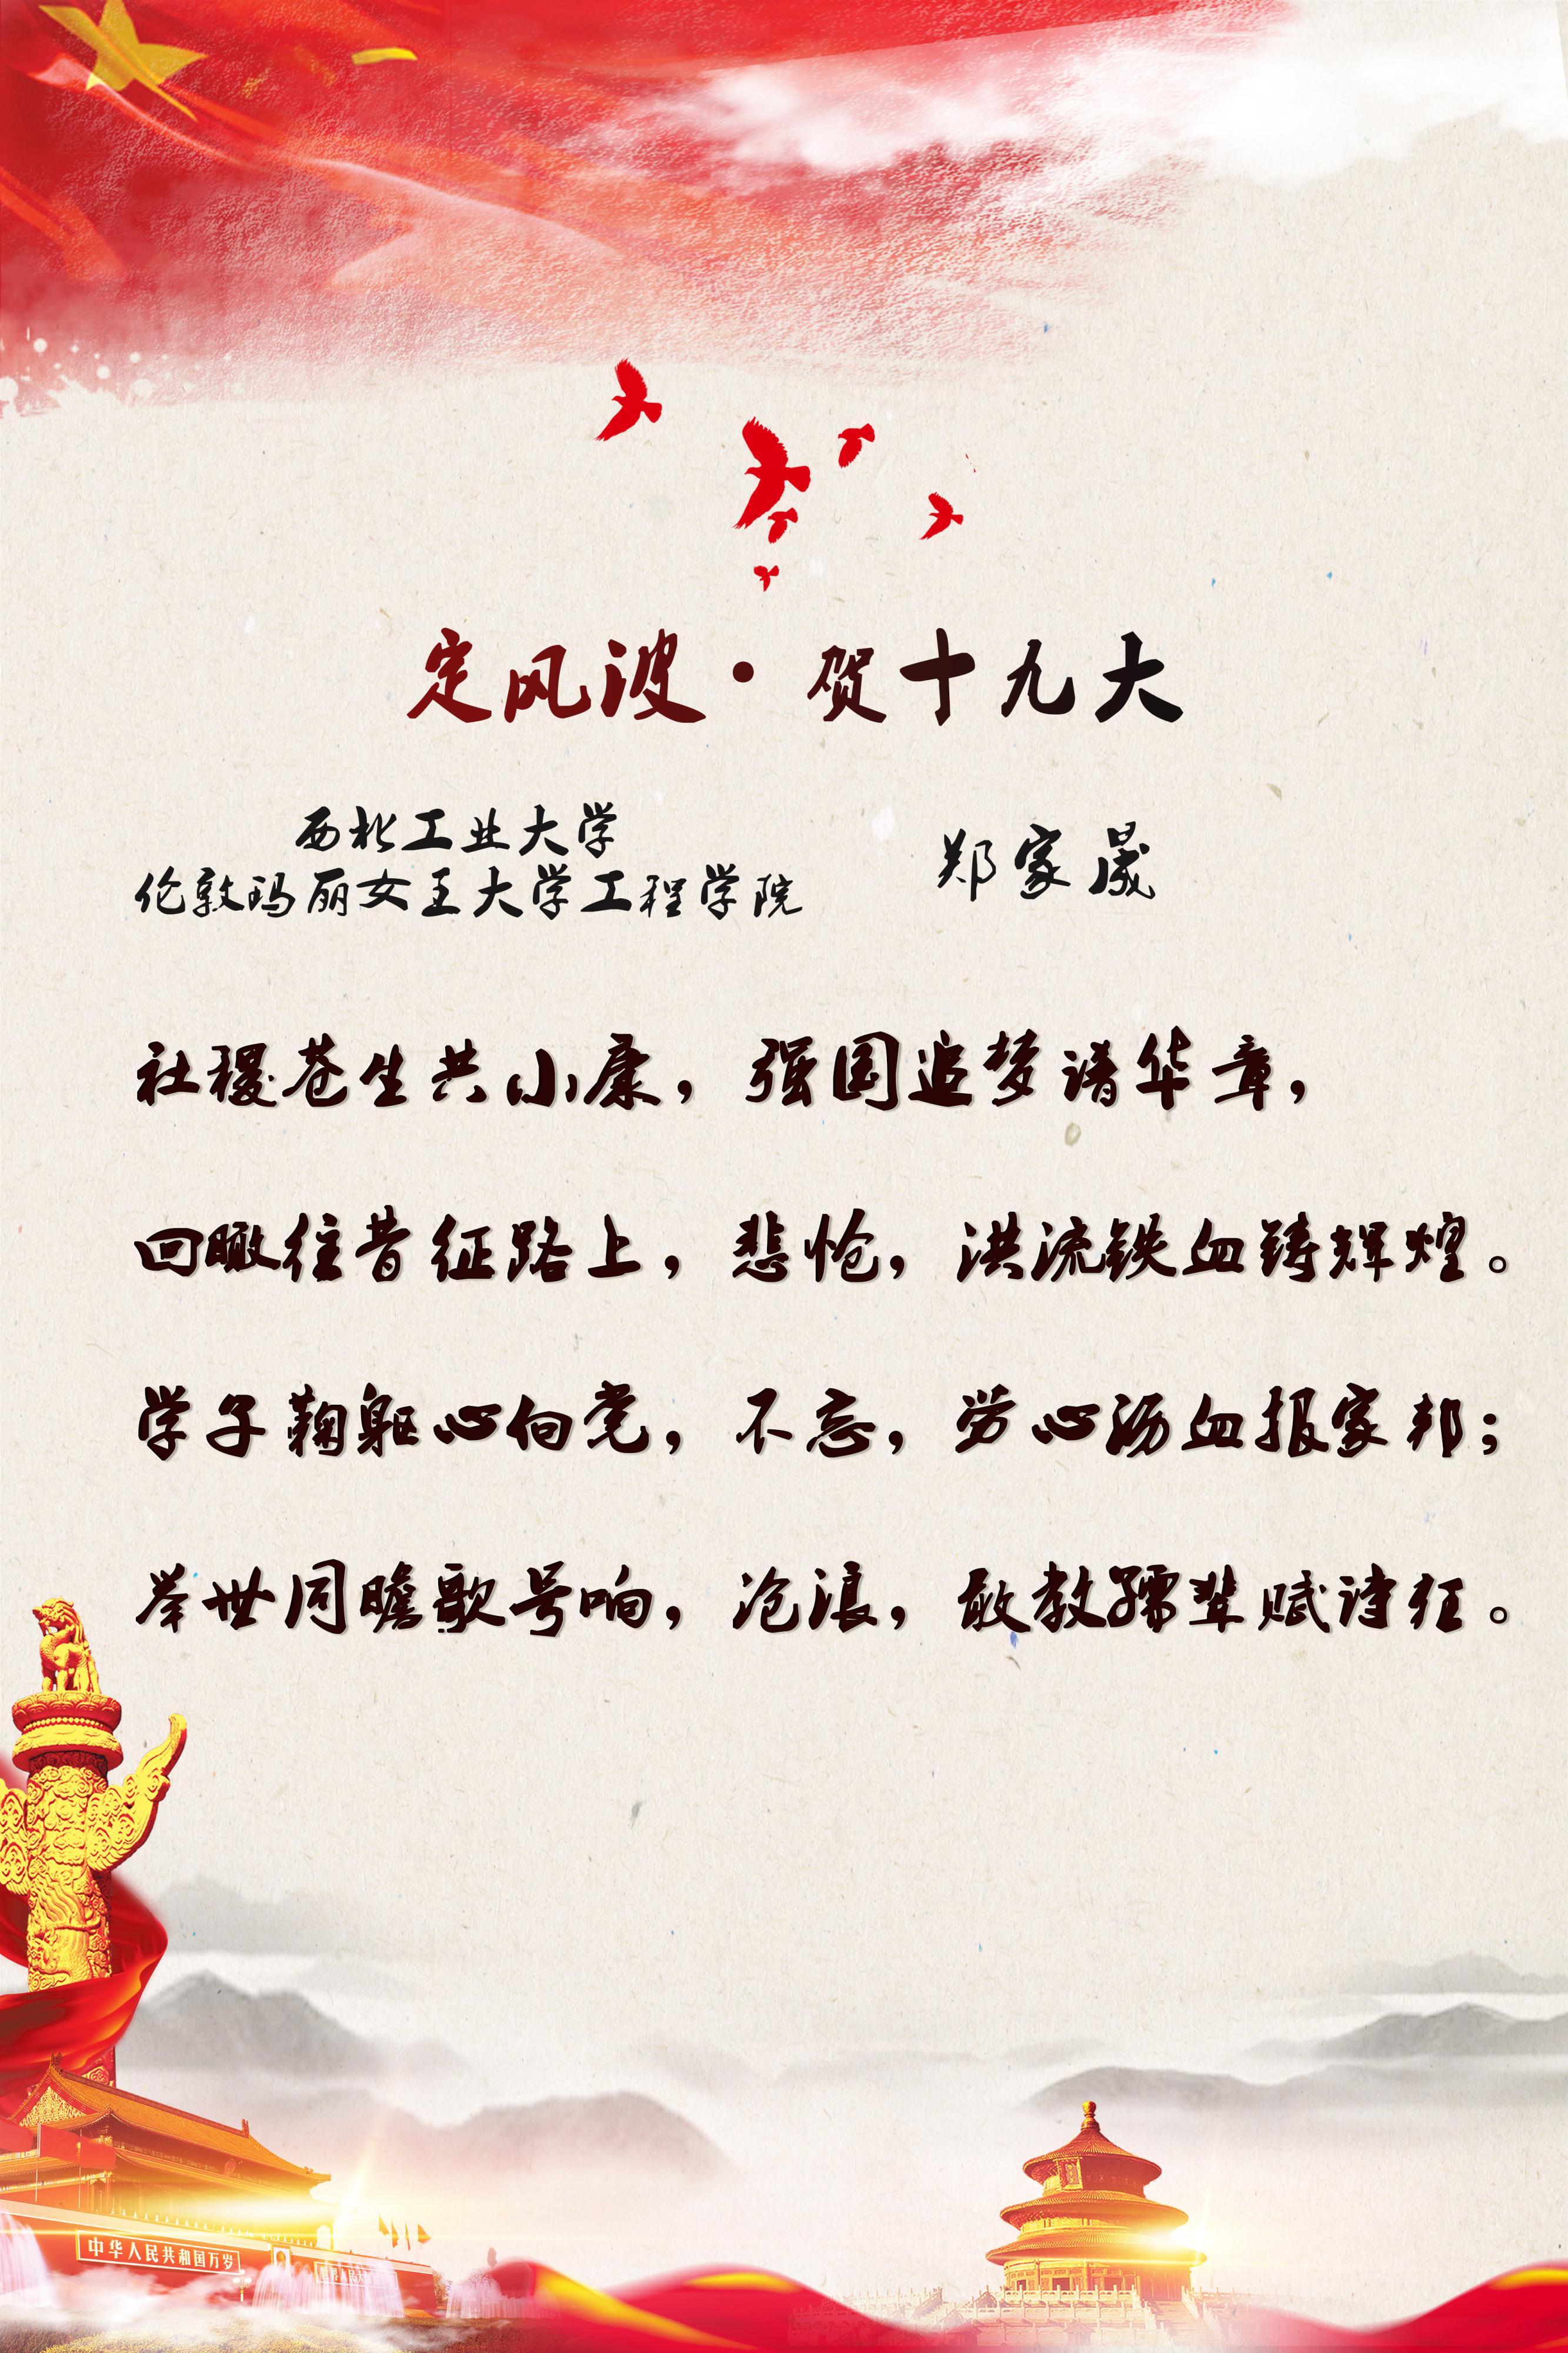 定风波·贺十九大
西北工业大学
伦敦玛丽女王大学工程学院
郑家晟
社稷苍生共小康，强国追梦谱华章，
回瞰往昔征路上，悲怆，洪流铁血铸辉煌。
学子鞠躯心向党，不忘，劳心沥血报家邦；
举世同瞻歌号响，沧浪，敢教孺辈赋诗狂。
中华人民共和国万岁